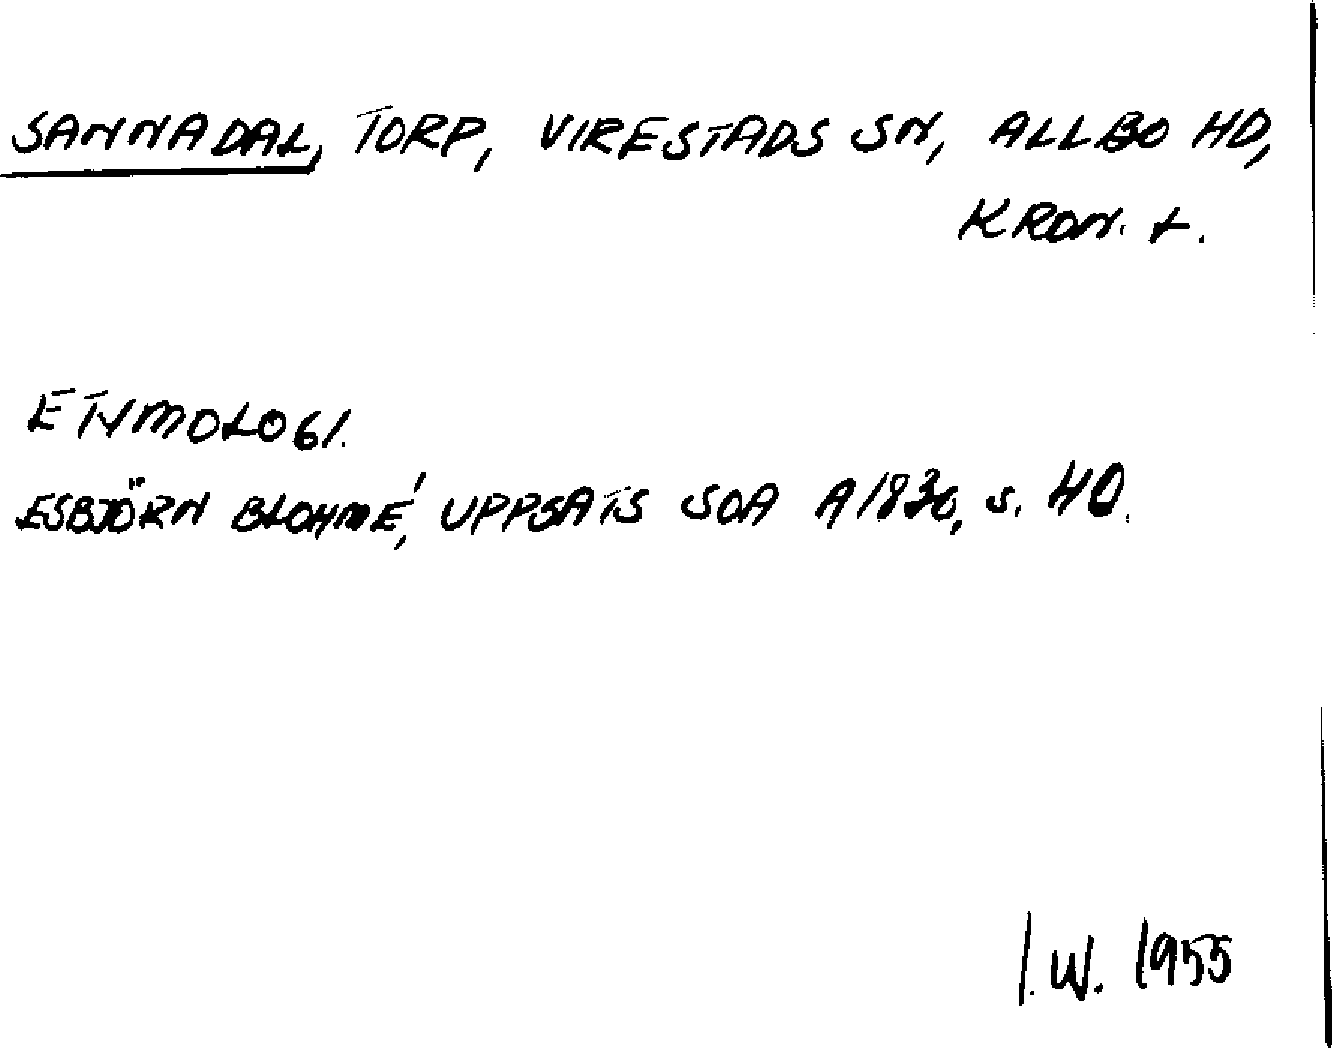 SANNADAL, TORP, VIRESTADS SN, ALLBO HD,
KRON. L.
ETYMOLOGI.
ESBJÖRN BLOHMÉ, UPPSATS SOA A1830, s. 40.
I.W. 1955